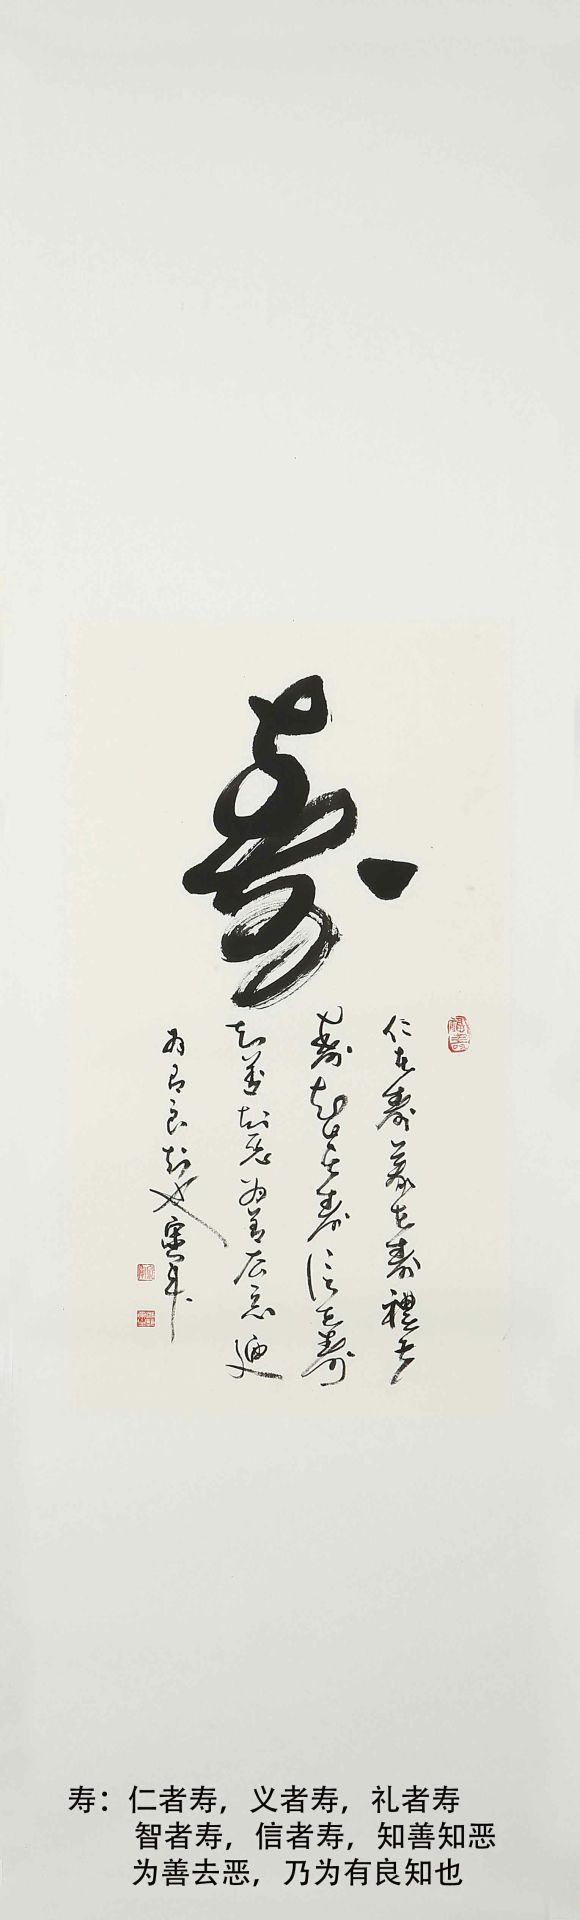 寿
仁者寿義者寿禮者
寿知者寿信者寿
知善知恶为善去恶迺
为有良知也
寿：仁者寿，义者寿，礼者寿
智者寿，信者寿，知善知恶
为善去恶，乃为有良知也